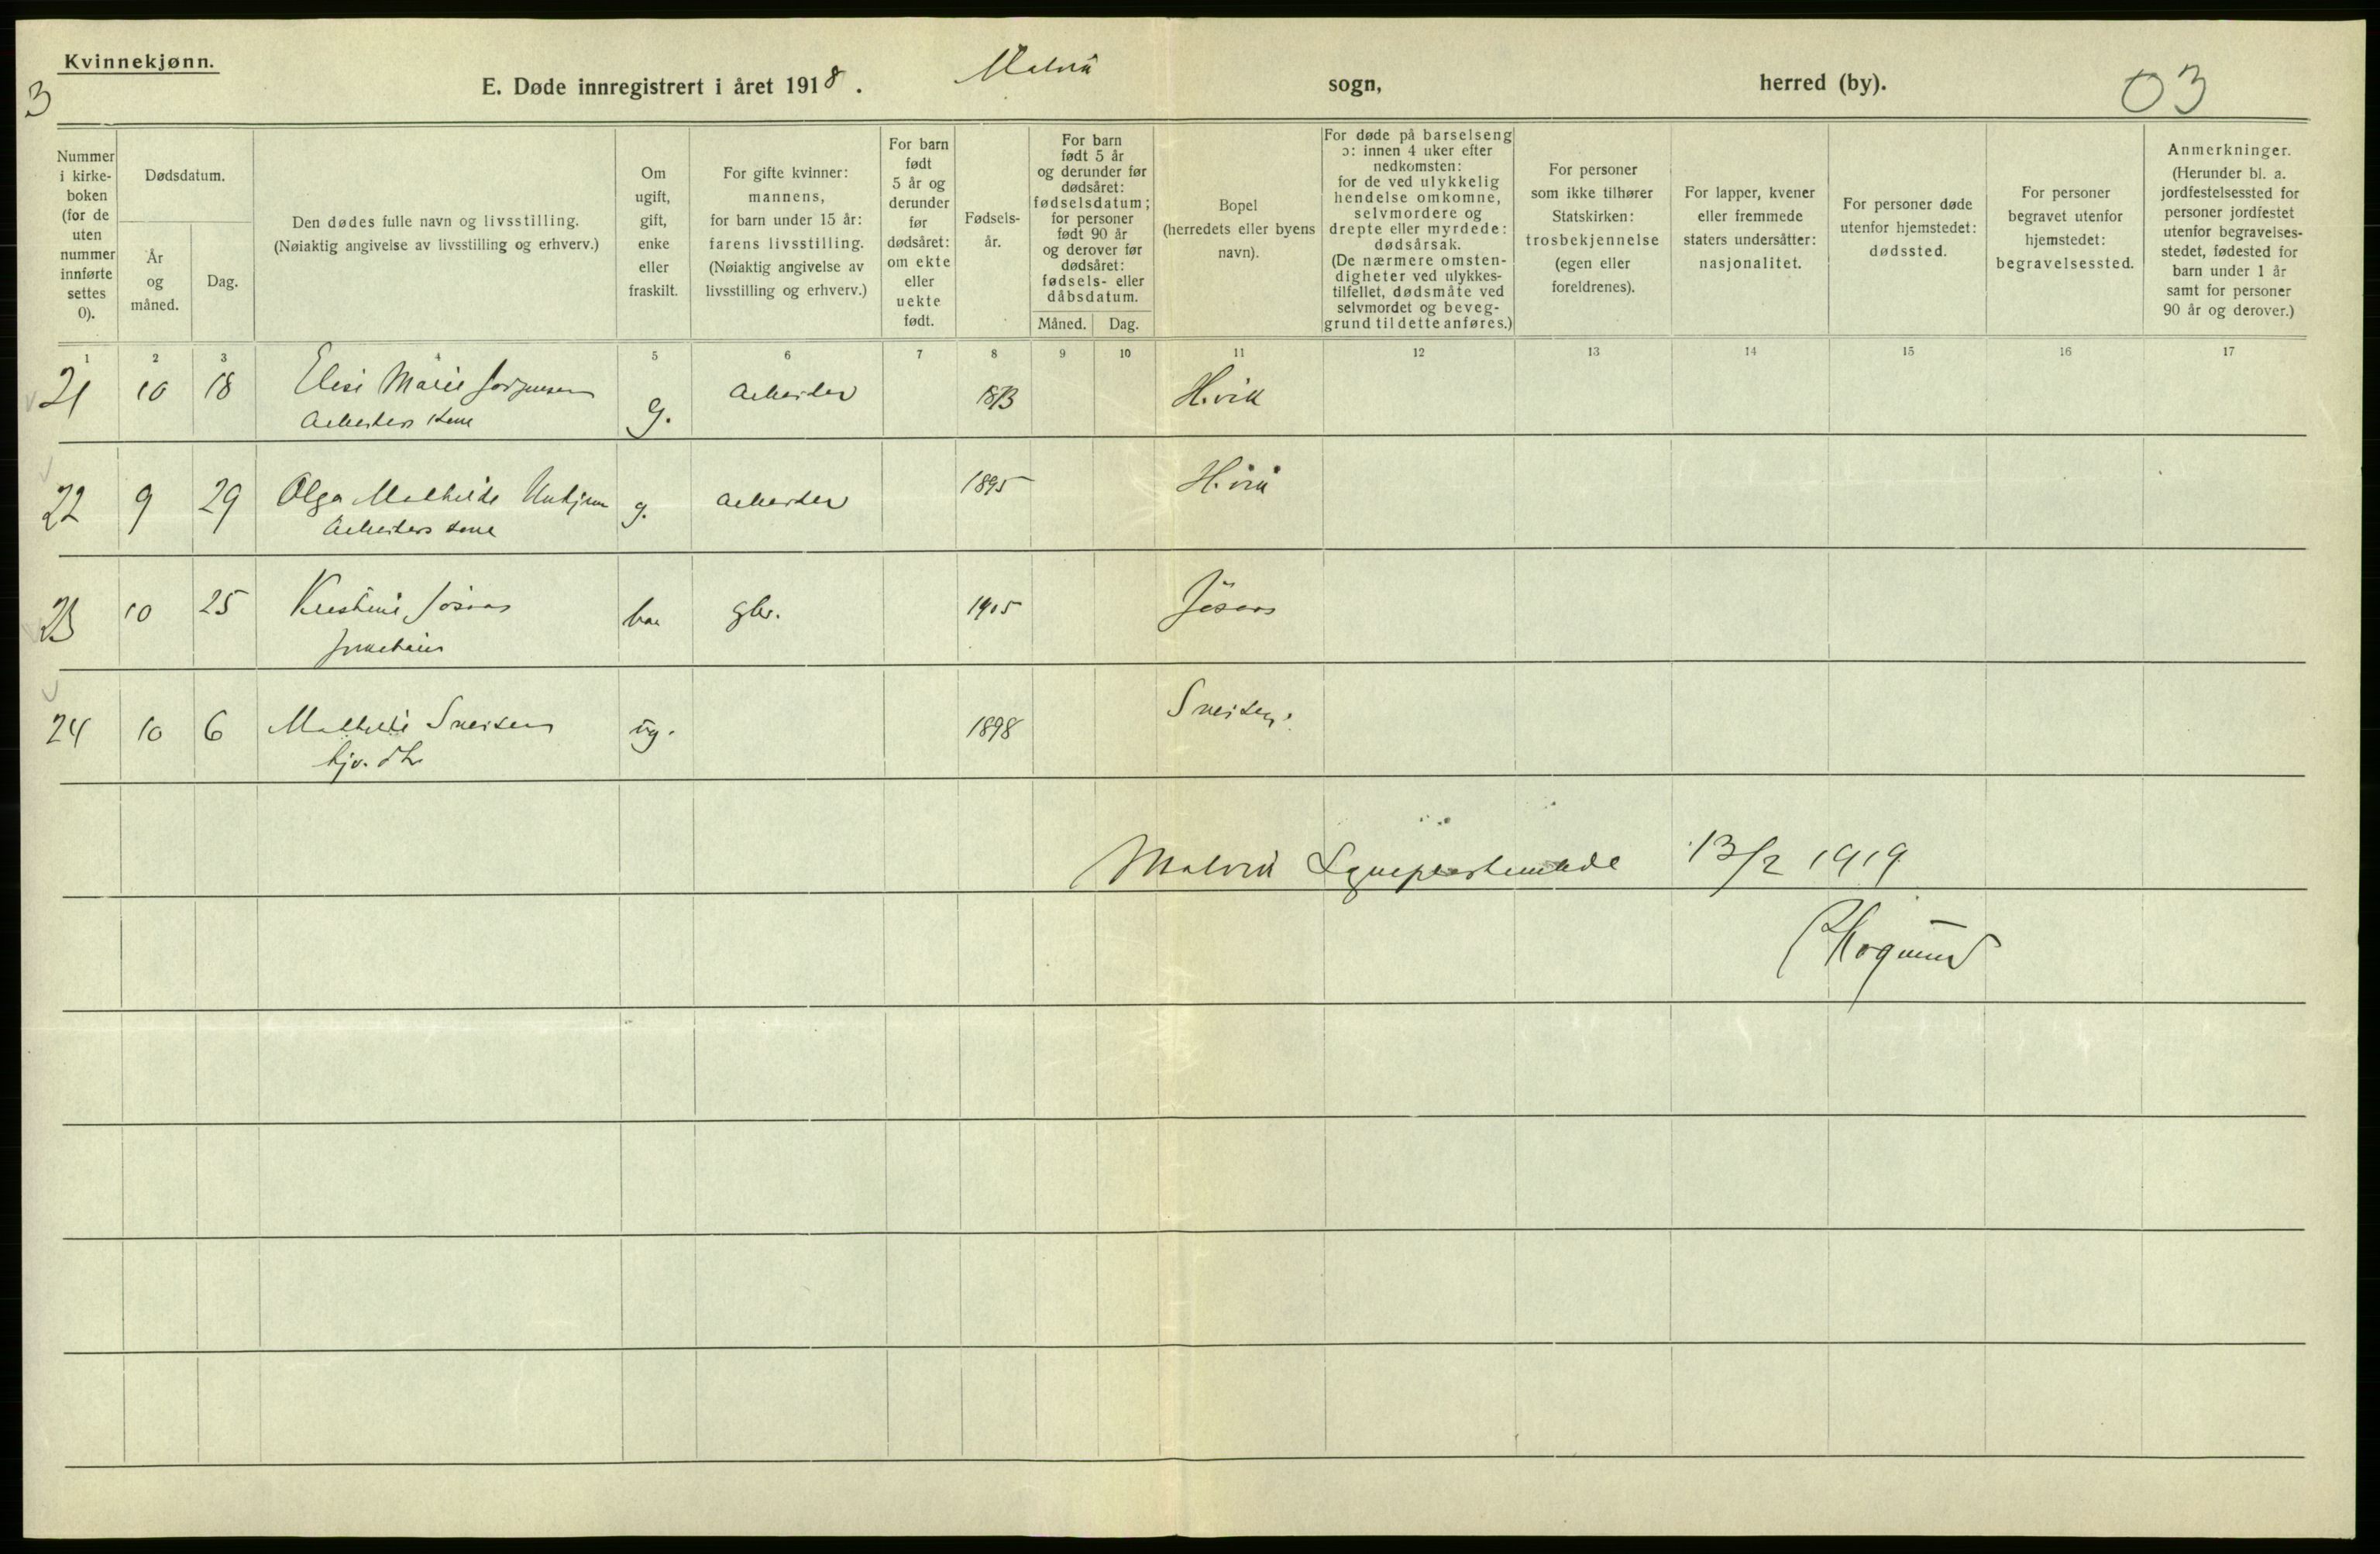 Kvinnekjønn.
3
E. Døde innregistrert i året 1918. Malvik sogn, herred (by). 03
Nummer i kirke-boken (for de uten nummer innførte settes 0).
Dødsdatum.
År og måned.
Dag.
Den dødes fulle navn og livsstilling.
(Nøiaktig angivelse av livsstilling og erhverv.)
Om ugift, gift, enke eller fraskilt.
For gifte kvinner: mannens, for barn under 15 år: farens livsstilling. (Nøiaktig angivelse av livsstilling og erhverv.)
For barn født 5 år og derunder før dødsåret: om ekte eller uekte født.
Fødsels-år.
For barn født 5 år og derunder før dødsåret: fødselsdatum; for personer født 90 år og derover før dødsåret: fødsels- eller dåbsdatum.
Måned. Dag.
Bopel (herredets eller byens navn).
For døde på barselseng ɔ: innen 4 uker efter nedkomsten: for de ved ulykkelig hendelse omkomne, selvmordere og drepte eller myrdede: dødsårsak. (De nærmere omsten-digheter ved ulykkes-tilfellet, dødsmåte ved selvmordet og beveg-grund til dette anføres.)
For personer som ikke tilhører Statskirken: trosbekjennelse (egen eller foreldrenes).
For lapper, kvener eller fremmede staters undersåtter: nasjonalitet.
For personer døde utenfor hjemstedet: dødssted.
For personer begravet utenfor hjemstedet: begravelsessted.
Anmerkninger. (Herunder bl. a. jordfestelsessted for personer jordfestet utenfor begravelses-stedet, fødested for barn under 1 år samt for personer 90 år og derover.)
1 2 3 4 5 6 7 8 9 10 11 12 13 14 15 16 17
21 10 18 Elise Marie Jørgensen g. Arbeider 1873 H.vik
Arbeiders kone
22 9 29 Olga Mathilde g. Arbeider 1895 H.vik
Arbeiders kone
23 10 25 Kristine Jøsaas gbr. 1915 Jøsaas
24 10 6 Mathilde Sneisen ug. 1898 Sneisen.
hjv. dtr
Malvik Sogneprestembede 13/2 1919